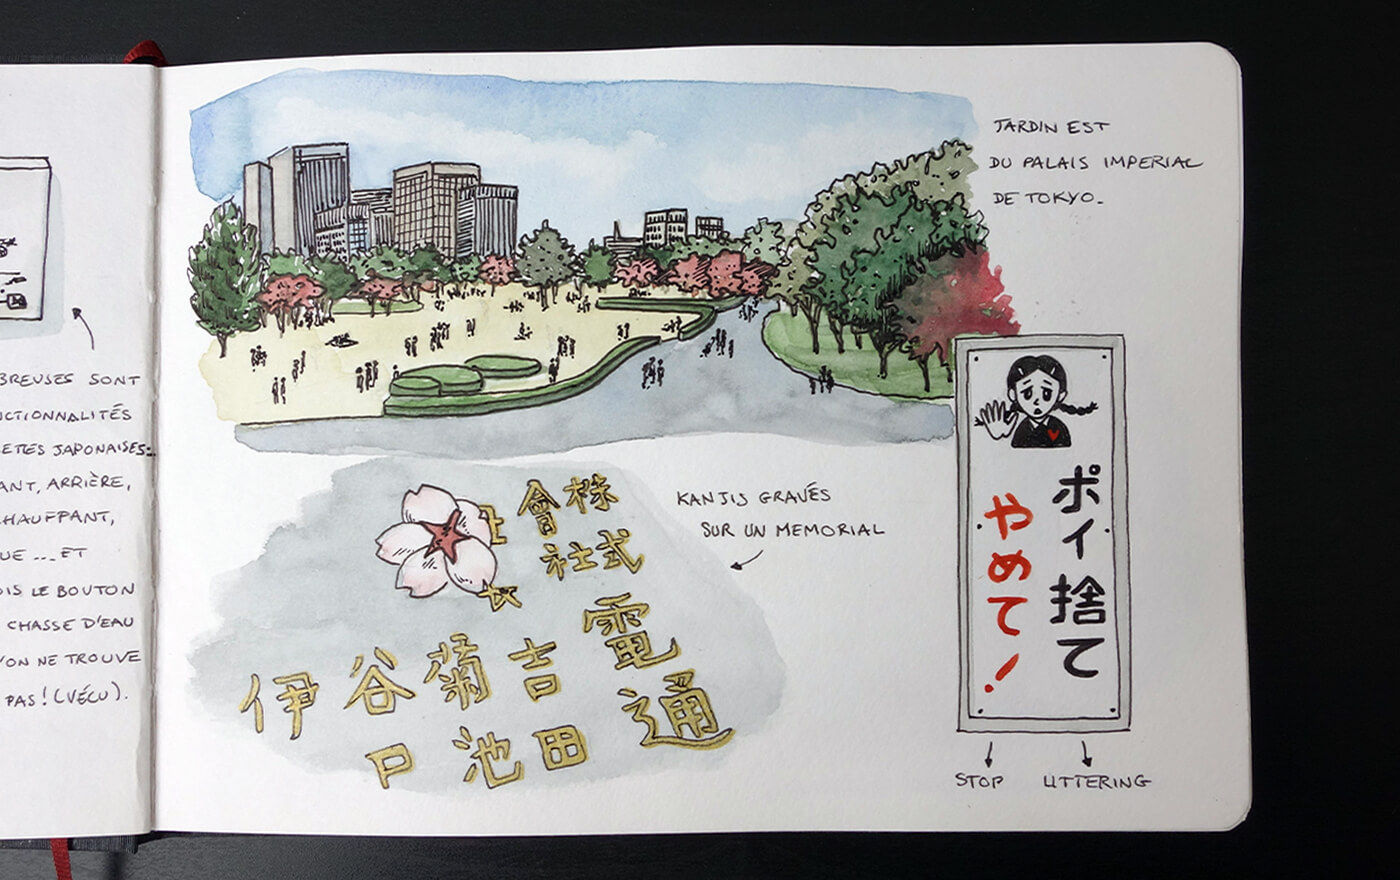 BREUSES SONT
NCTIONNALITÉS
ETTES JAPONAISES:
ANT, ARRIÈRE,
CHAUFFANT,
UE ... ET
OIS LE BOUTON
CHASSE D'EAU
'ON NE TROUVE
PAS! (VÉCU).
JARDIN EST
DU PALAIS IMPERIAL
DE TOKYO.
KANJIS GRAVÉS
SUR UN MEMORIAL
株式
會社
電通
長
吉田
菊池
谷戸
伊
ポイ捨て
やめて!
STOP LITTERING